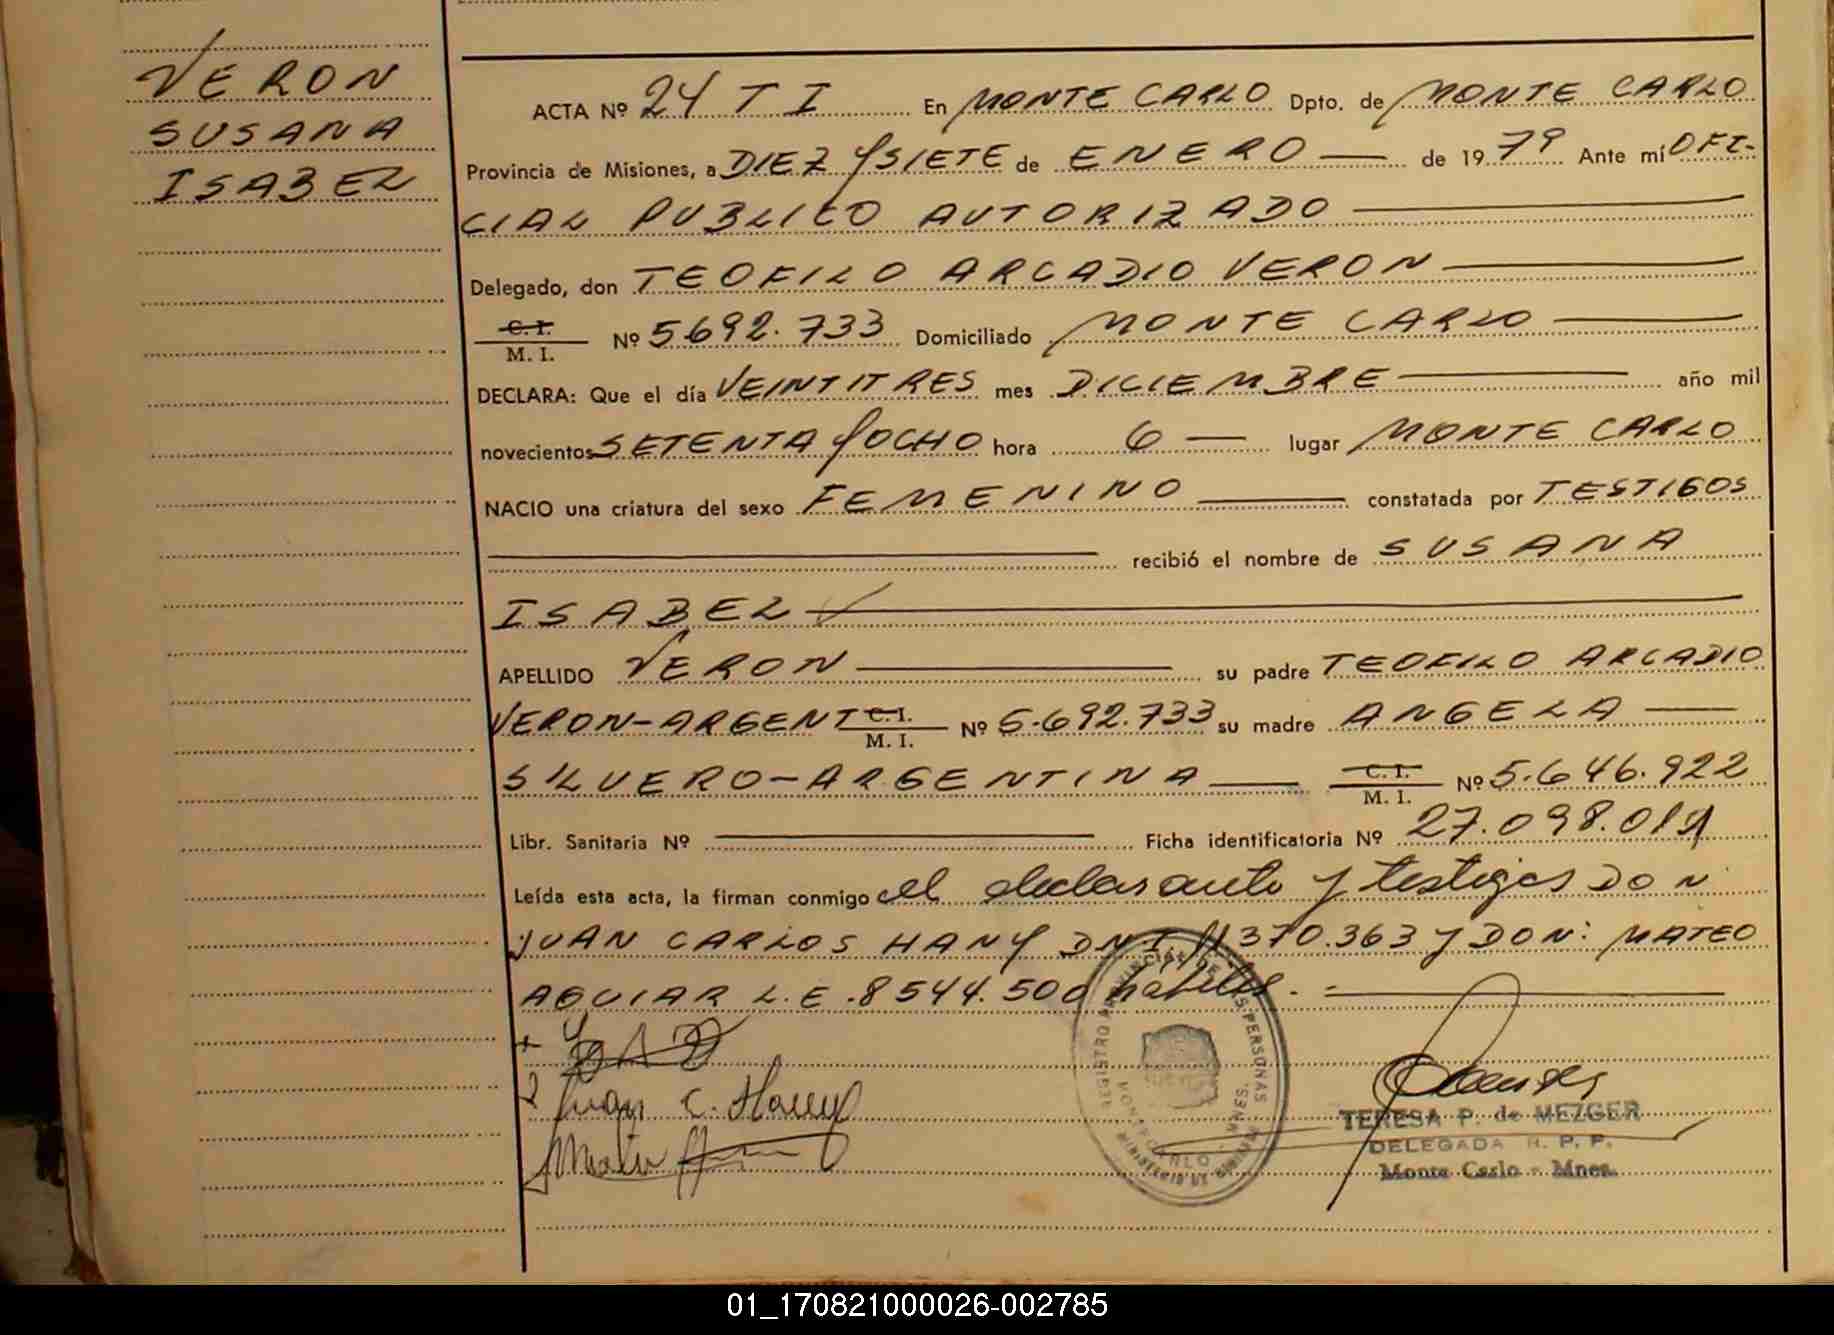 VERON
SUSANA
ISABEL
ACTA Nº 24 T I En MONTE CARLO Dpto. de MONTE CARLO
Provincia de Misiones, a DIEZ Y SIETE de ENERO de 1979 Ante mí OFI-
CIAL PUBLICO AUTORIZADO
Delegado, don TEOFILO ARCADIO VERON
C. I.
M. I. Nº 5.692.733 Domiciliado MONTE CARLO
DECLARA: Que el día VEINTITRES mes DICIEMBRE año mil
novecientos SETENTA Y OCHO hora 6 lugar MONTE CARLO
NACIO una criatura del sexo FEMENINO constatada por TESTIGOS
recibió el nombre de SUSANA
ISABEL
APELLIDO VERON su padre TEOFILO ARCADIO
VERON-ARGENT C. I. M. I. Nº 5.692.733 su madre ANGELA
SILVERO-ARGENTINA C. I. M. I. Nº 5.646.922
Libr. Sanitaria Nº Ficha identificatoria Nº 27.098.019
Leída esta acta, la firman conmigo el declarante y testigos DON
JUAN CARLOS HANY DNI. 11370.363 y DON: MATEO
AGUIAR L.E. 8544.500 hábiles.-
Juan C. Hany
Mateo
REGISTRO PROVINCIAL DE LAS PERSONAS
MONTECARLO - MNES.
TERESA P. de MEZGER
DELEGADA R. P. P.
Monte Carlo - Mnes.
01_170821000026-002785